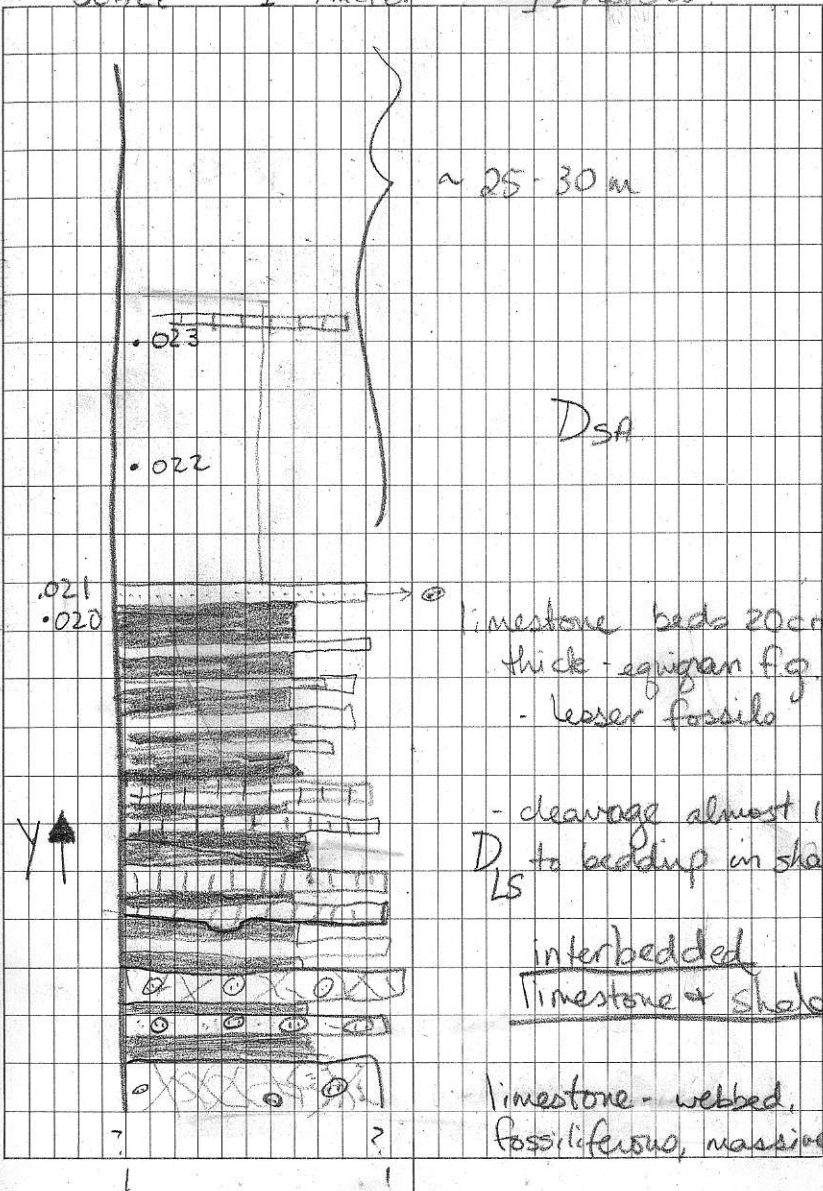 Scale 1
~ 25-30 m
. 023
DSA
. 022
.021
.020
limestone beds 20c
thick - equigran. f.g.
- lesser fossils
- cleavage almost
Y
DLS
to bedding in sha
interbedded
limestone + shale
limestone - webbed,
fossiliferous, massive
? ?